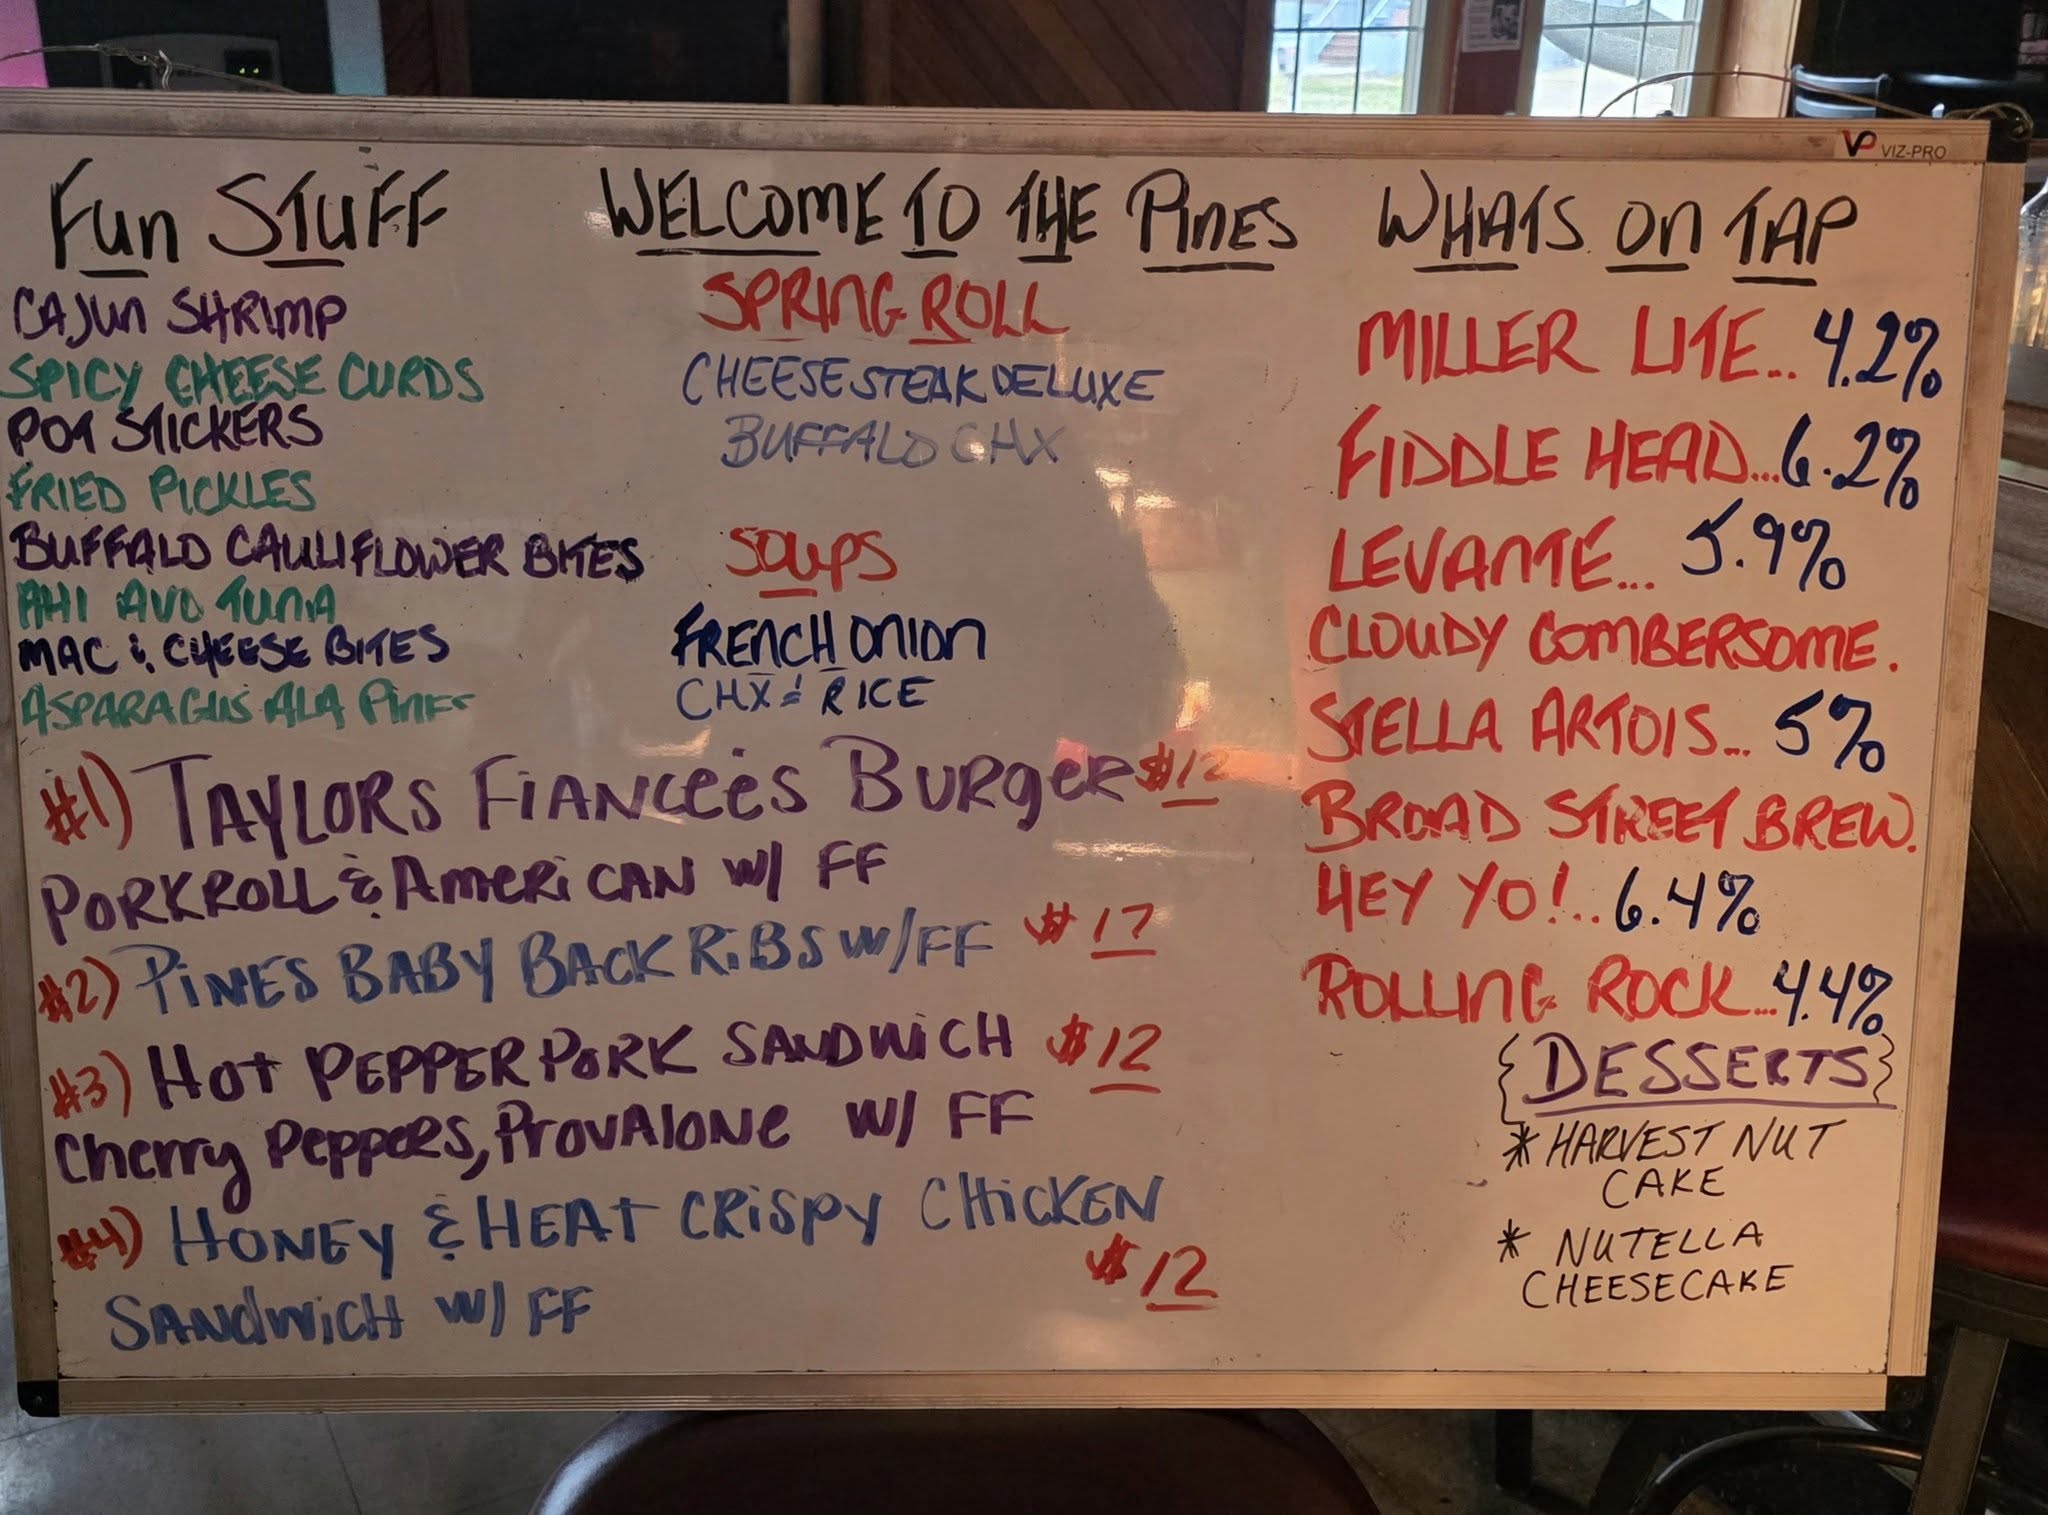 VP VIZ-PRO
Fun STUFF
CAJUN SHRIMP
SPICY CHEESE CURDS
POT STICKERS
FRIED PICKLES
BUFFALO CAULIFLOWER BITES
AHI AVO TUNA
MAC & CHEESE BITES
ASPARAGUS ALA PINES
WELCOME TO THE PINES
SPRING ROLL
CHEESESTEAK DELUXE
BUFFALO CHX
SOUPS
FRENCH ONION
CHX & RICE
#1) TAYLORS FIANCEÉS BURGER $12
PORKROLL & AMERICAN W/ FF
#2) PINES BABY BACK RIBS W/FF $17
#3) HOT PEPPER PORK SANDWICH $12
Cherry PEPPERS, PROVALONE W/ FF
#4) HONEY & HEAT CRISPY CHICKEN
SANDWICH W/ FF $12
WHATS ON TAP
MILLER LITE... 4.2%
FIDDLE HEAD...6.2%
LEVANTE... 5.9%
CLOUDY COMBERSOME.
STELLA ARTOIS... 5%
BROAD STREET BREW.
HEY YO!.. 6.4%
ROLLING ROCK...4.4%
{DESSERTS}
* HARVEST NUT
CAKE
* NUTELLA
CHEESECAKE